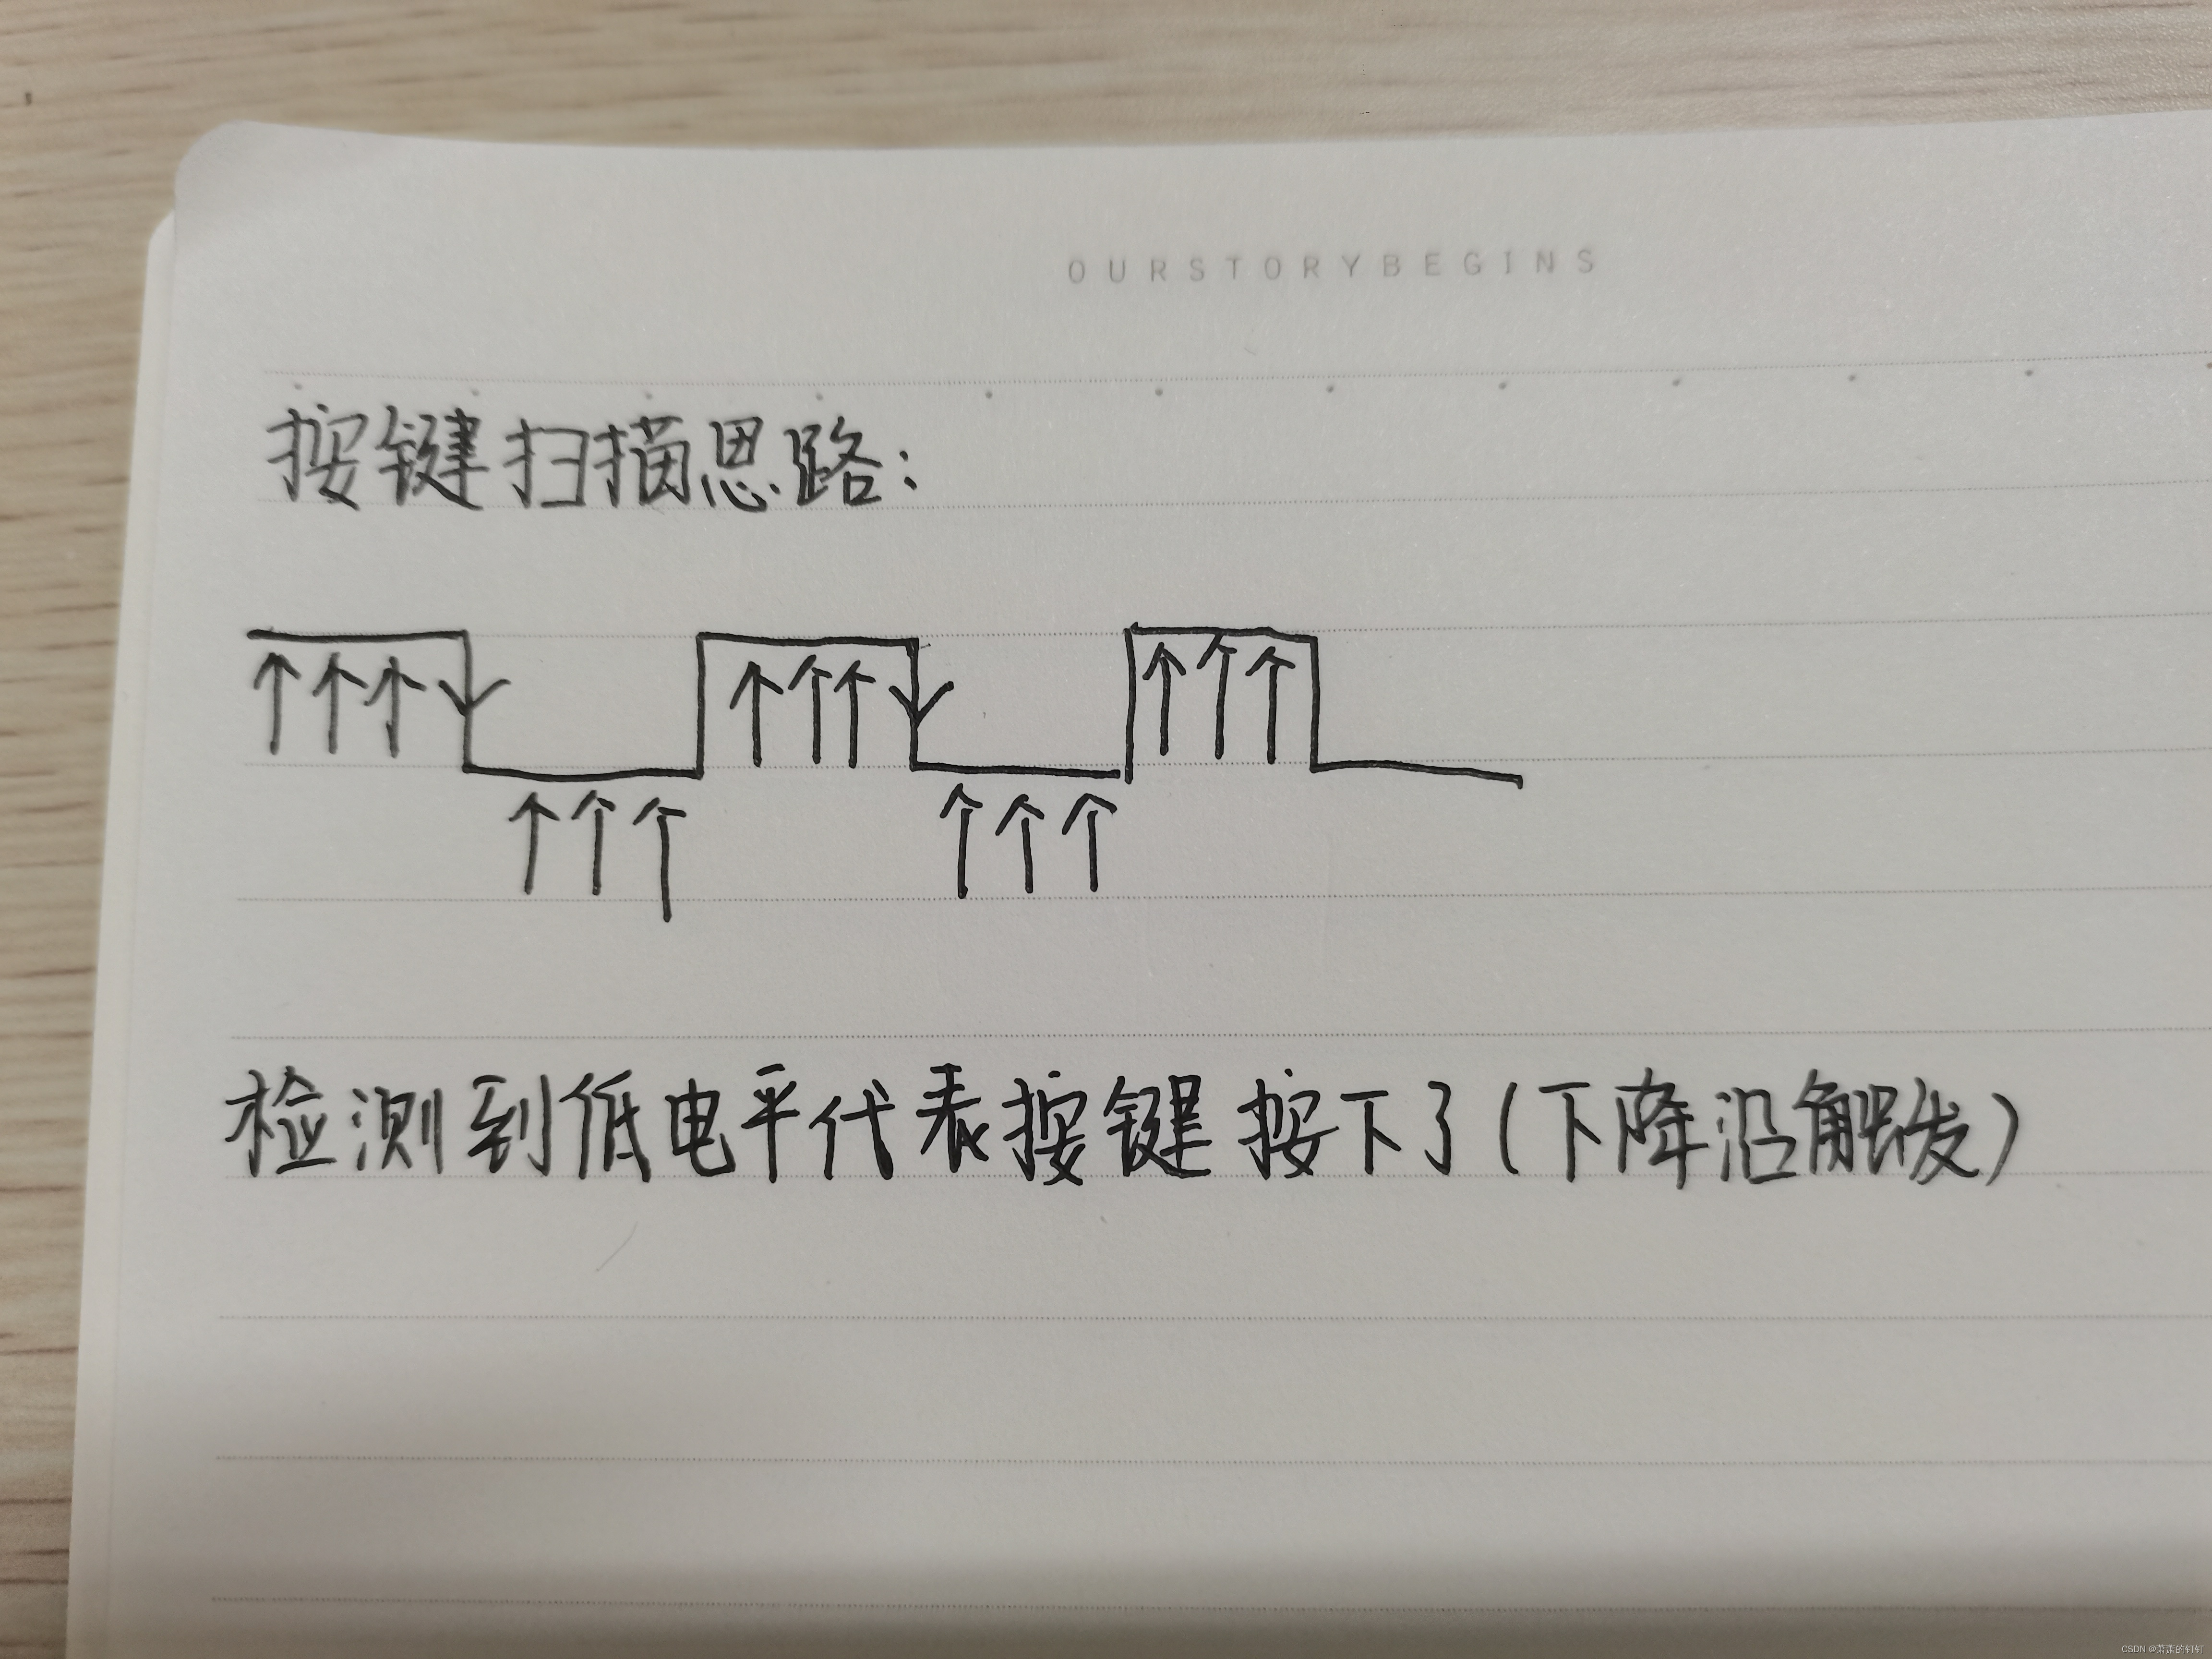 OURSTORYBEGINS
按键扫描思路：
检测到低电平代表按键按下了（下降沿触发）
CSDN @萧萧的钉钉